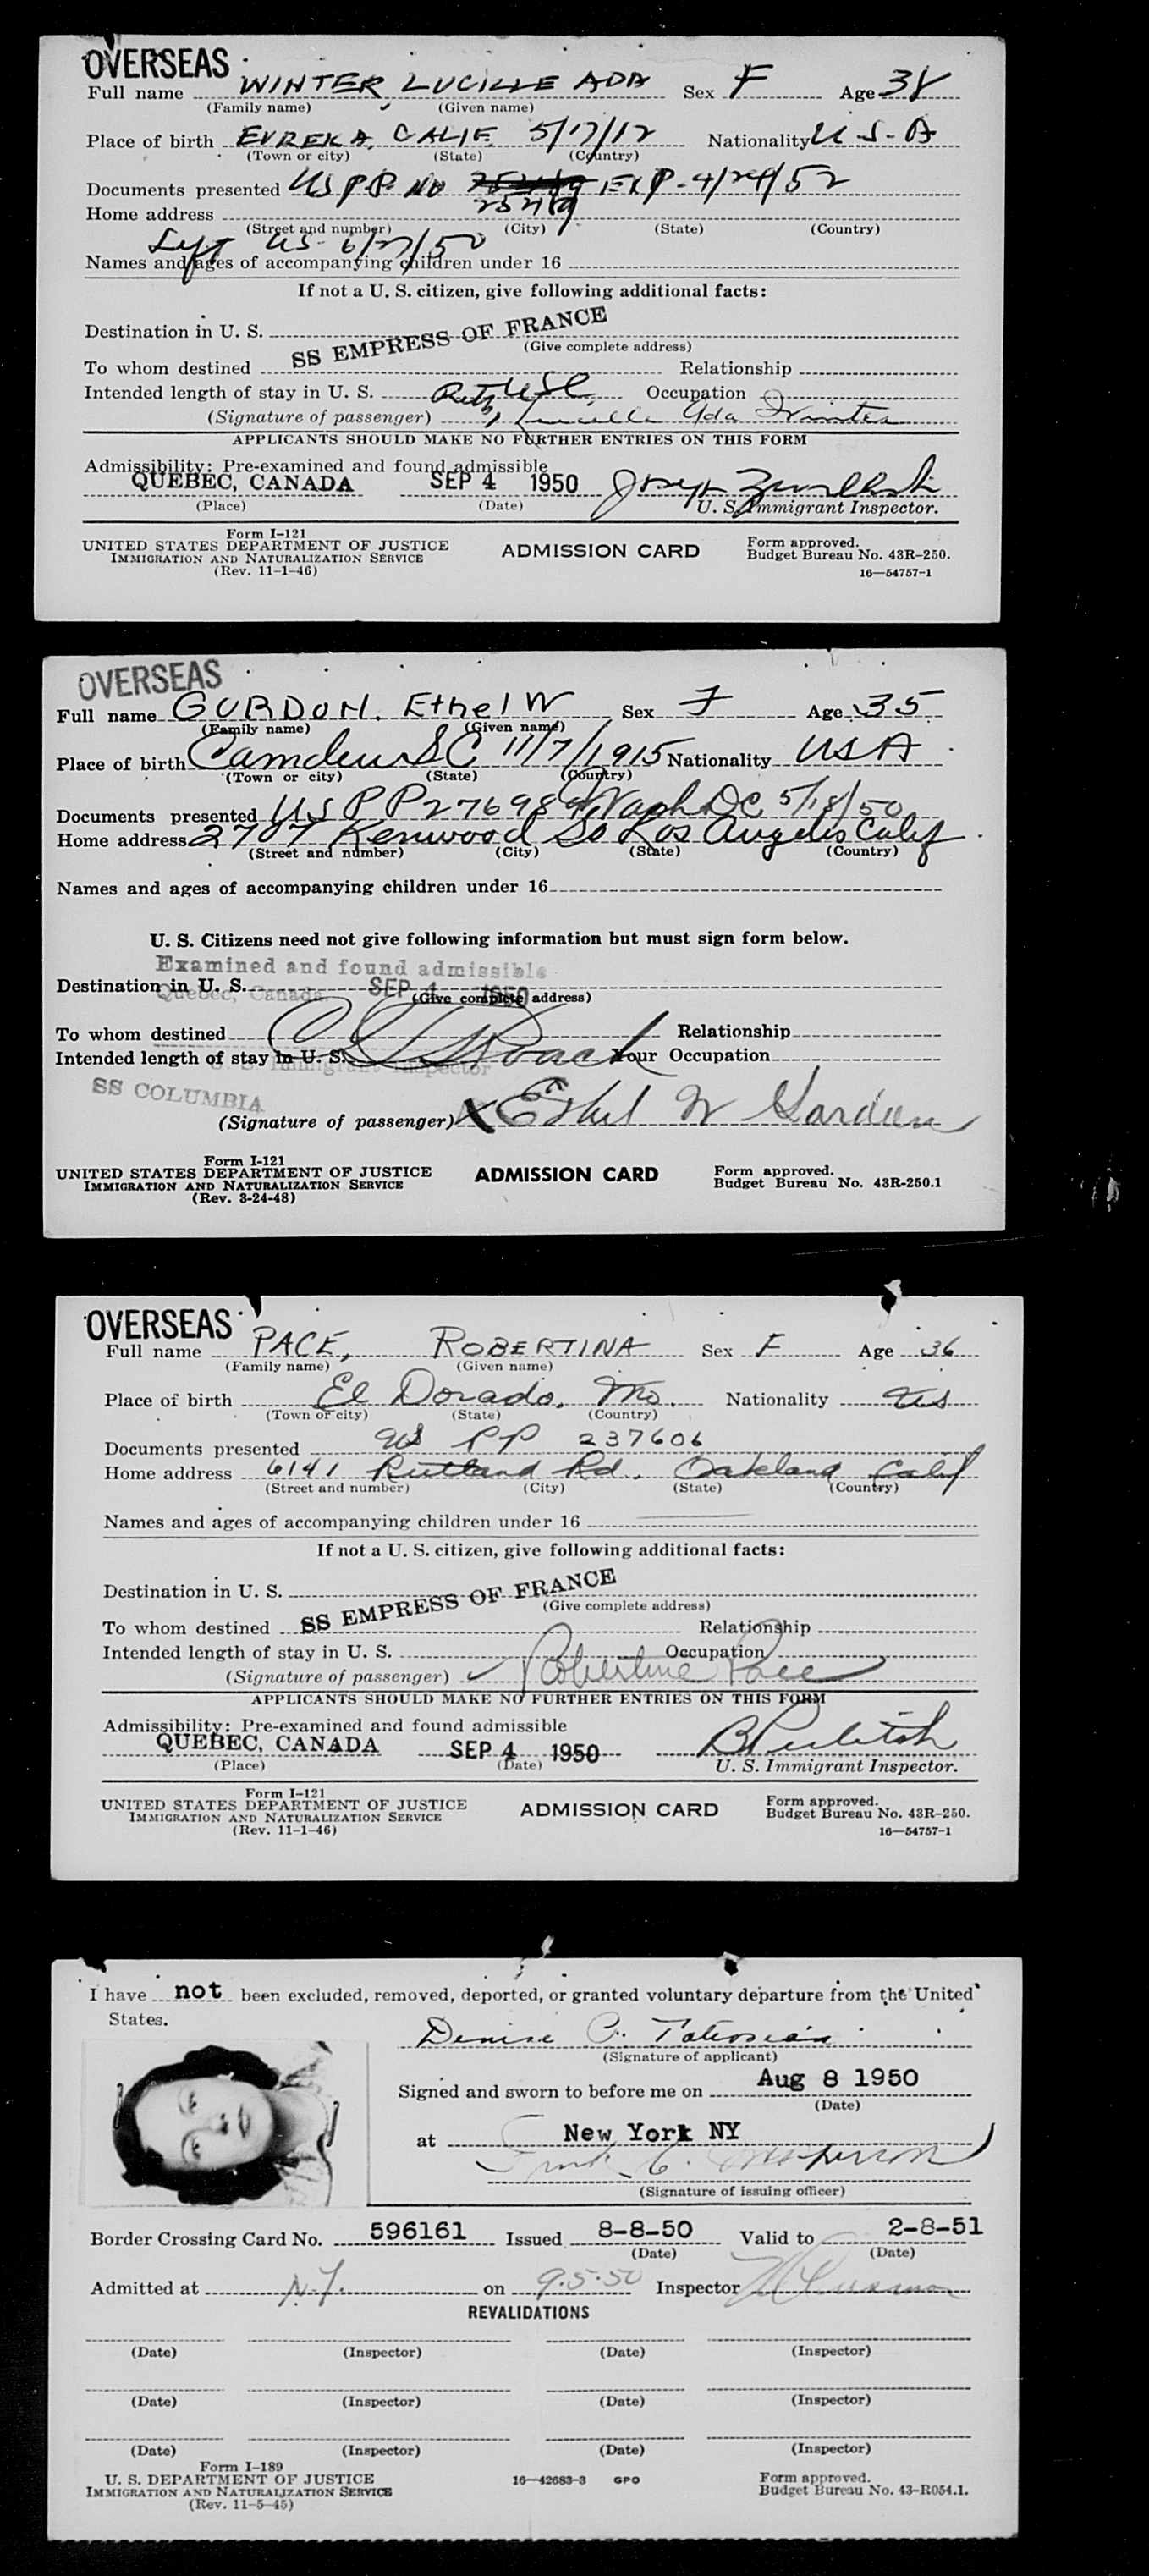 OVERSEAS
Full name WINTER, LUCILLE ADA Sex F Age 38
(Family name) (Given name)
Place of birth EUREKA, CALIF. 5/17/12 Nationality U S. A
(Town or city) (State) (Country)
Documents presented US P.P. No EXP. 4/24/52
Home address
(Street and number) (City) (State) (Country)
Left US 6/27/50
Names and ages of accompanying children under 16
If not a U. S. citizen, give following additional facts:
Destination in U. S.
SS EMPRESS OF FRANCE
(Give complete address)
To whom destined Relationship
Intended length of stay in U. S. Occupation
(Signature of passenger) Lucille Ada Winter
APPLICANTS SHOULD MAKE NO FURTHER ENTRIES ON THIS FORM
Admissibility: Pre-examined and found admissible
QUEBEC, CANADA SEP 4 1950
(Place) (Date) U. S. Immigrant Inspector.
Form I-121
UNITED STATES DEPARTMENT OF JUSTICE ADMISSION CARD Form approved.
IMMIGRATION AND NATURALIZATION SERVICE Budget Bureau No. 43R-250.
(Rev. 11-1-46) 16—54757-1
OVERSEAS
Full name GORDON, Ethel W Sex F Age 35
(Family name) (Given name)
Place of birth Camden SC 11/7/1915 Nationality USA
(Town or city) (State) (Country)
Documents presented US PP 276989 Wash DC 5/18/50
Home address 2707 Kenwood So Los Angeles Calif
(Street and number) (City) (State) (Country)
Names and ages of accompanying children under 16
U. S. Citizens need not give following information but must sign form below.
Examined and found admissible
Destination in U. S.
Quebec, Canada SEP 4 1950
(Give complete address)
To whom destined Relationship
Intended length of stay in U. S. Your Occupation
U. S. Immigrant Inspector
SS COLUMBIA
(Signature of passenger) X Ethel W Gordon
Form I-121
UNITED STATES DEPARTMENT OF JUSTICE ADMISSION CARD Form approved.
IMMIGRATION AND NATURALIZATION SERVICE Budget Bureau No. 43R-250.1
(Rev. 3-24-48)
OVERSEAS
Full name PACE, ROBERTINA Sex F Age 36
(Family name) (Given name)
Place of birth El Dorado, Mo. Nationality US
(Town or city) (State) (Country)
Documents presented US PP 237606
Home address 6141 Rutland Rd. Oakland Calif
(Street and number) (City) (State) (Country)
Names and ages of accompanying children under 16
If not a U. S. citizen, give following additional facts:
Destination in U. S.
SS EMPRESS OF FRANCE
(Give complete address)
To whom destined Relationship
Intended length of stay in U. S. Occupation
(Signature of passenger) Robertine Pace
APPLICANTS SHOULD MAKE NO FURTHER ENTRIES ON THIS FORM
Admissibility: Pre-examined and found admissible
QUEBEC, CANADA SEP 4 1950
(Place) (Date) U. S. Immigrant Inspector.
Form I-121
UNITED STATES DEPARTMENT OF JUSTICE ADMISSION CARD Form approved.
IMMIGRATION AND NATURALIZATION SERVICE Budget Bureau No. 43R-250.
(Rev. 11-1-46) 16—54757-1
I have not been excluded, removed, deported, or granted voluntary departure from the United
States.
Denise
(Signature of applicant)
Signed and sworn to before me on Aug 8 1950
(Date)
at New York NY
(Signature of issuing officer)
Border Crossing Card No. 596161 Issued 8-8-50 Valid to 2-8-51
(Date) (Date)
Admitted at N.Y. on 9.5.50 Inspector
REVALIDATIONS
(Date) (Inspector) (Date) (Inspector)
(Date) (Inspector) (Date) (Inspector)
(Date) (Inspector) (Date) (Inspector)
Form I-189
U. S. DEPARTMENT OF JUSTICE 16—42683-3 GPO Form approved.
IMMIGRATION AND NATURALIZATION SERVICE Budget Bureau No. 43-R054.1.
(Rev. 11-5-45)